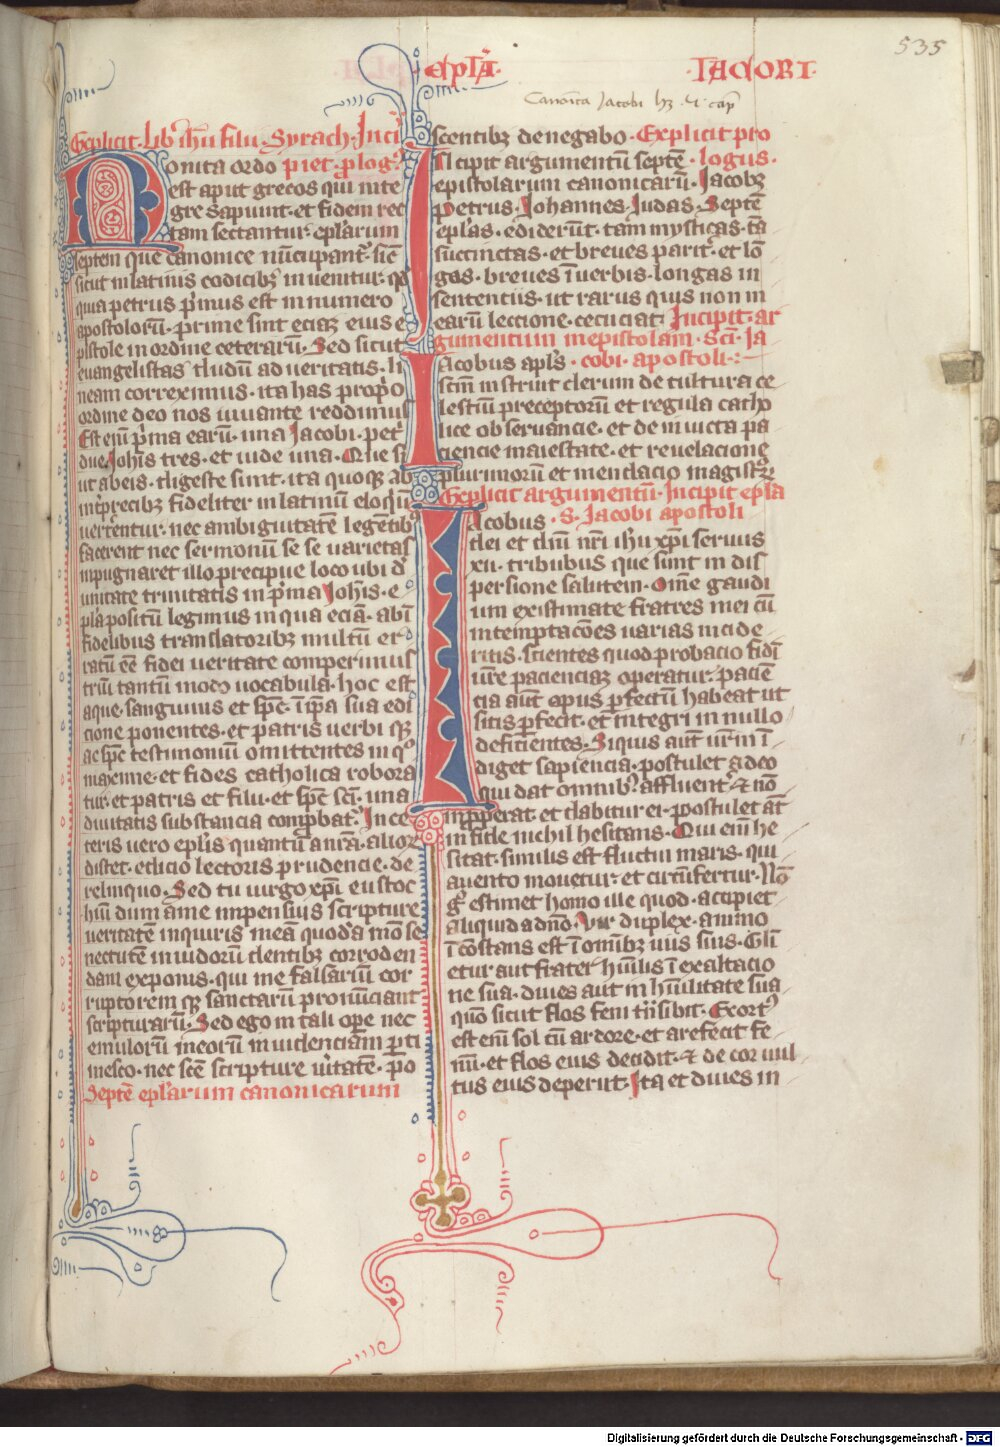 535
·Epl'a· ·IACOBI·
Canonica Jacobi hz .4. cap
Explicit Lib' ihu filii Syrach· Inci
Non ita ordo piet prolog'
est aput grecos qui inte
gre sapiunt· et fidem rec
tam sectantur· ep'larum
septem que canonice nūcupant'· sic
sicut in latinis codicibz inuenitur· qz
quia petrus p'mus est in numero
apostolorū· prime sint eciaz eius e
pistole in ordine ceterarū· Sed sicut
euangelistas dudū ad ueritatis· li
neam correximus· ita has prop'o
ordine deo nos iuuante reddimus
Est eni p'ma earū· una Jacobi· pet'
due Johis tres· et iude una· Que si
ut ab eis· digeste sunt· ita quoqz ab
int'precibz fideliter in latinū eloqū
uerterentur· nec ambiguitatē legētibz
facerent nec sermonū se se uarietas
inpugnaret illo precipue loco ubi d'
unitate trinitatis in p'ma Johis· e
pla positū legimus in qua eciā· abī
fidelibus translatoribz multū er
ratū eē fidei ueritate comperimus
triū tantū modo uocabula· hoc est
aque· sanguinis et spc̄· ī ip̄a sua edi
cione ponentes· et patris uerbi qz
ac spc̄ testimoniū omittentes in q°
maxime· et fides catholica robora
tur· et patris et filii· et spc̄ sci· una
diuitatis substancia comprobat'· In ce
teris uero epl'is quantū a nrā· alior
distet· edicio lectoris prudencie· de
relinquo· Sed tu uirgo xpi eustoc
hiū dum a me inpensius scripture
ueritatē inquiris meā quodā mō se
nectutē inuidorū dentibz corroden
dam exponis· qui me falsariū cor
ruptorem qz sanctarū pronūciant
scripturarū· Sed ego in tali ope nec
emulorū meorū inuidenciam perti
mesco· nec sc̄e scripture u'itatē· po
Septē epl'arum canonicarum
scentibz denegabo· Explicit pro
Incipit argumentū septē· logus·
epistolarum canonicarū· Jacobz
Petrus· Johannes Judas· Septē
eplas· ediderūt· tam mysticas· tā
succinctas· et breues parit'· et lō
gas· breues ī uerbis· longas in
sentenciis· ut rarus quis non in
earū lectione· cecuciat· Incipit· ar
gumentum in epistolam· Sci· Ja
Iacobus apl's· cobi· apostoli·:—
scm̄ instruit clerum de cultura ce
lestiū preceptorū et regula catho
lice obseruancie· et de inuicta pa
ciencie maiestate· et reuelacione
plurimorū et mendacio magistr'
Explicit argumentū· Incipit epl'a
Iacobus· S· Jacobi apostoli
dei et dnī nrī ihu xpi seruus
xii· tribubus que sunt in dis
persione salutem· Omē gaudi
um existimate fratres mei cū
in temptacōes uarias incide
ritis· scientes quod probacio fidī
ure pacienciaz operatur· paciē
cia aūt opus pfectū habeat ut
sitis pfecti· et integri in nullo
deficientes· Si quis aūt ur̄m ī
diget sapiencia· postulet a deo
qui dat omnibz affluent'· & nō
inpperat· et dabitur ei· postulet āt
in fide nichil hesitans· Qui eni he
sitat· similis est fluctui maris· qui
a uento mouetur· et circūfertur· Nō
g° estimet homo ille quod· accipiet
aliquid a dnō· Vir duplex· animo
īcostans est ī omibz uiis suis· Glī
etur aut frater hūilis ī exaltacio
ne sua· diues aut in hūilitate suā
quō sicut flos feni trīsibit· Exort'
est eni sol cū ardore· et arefecit fe
nū· et flos eius decidit· & decor uul
tus eius deperiit· Ita et diues in
Digitalisierung gefördert durch die Deutsche Forschungsgemeinschaft - DFG